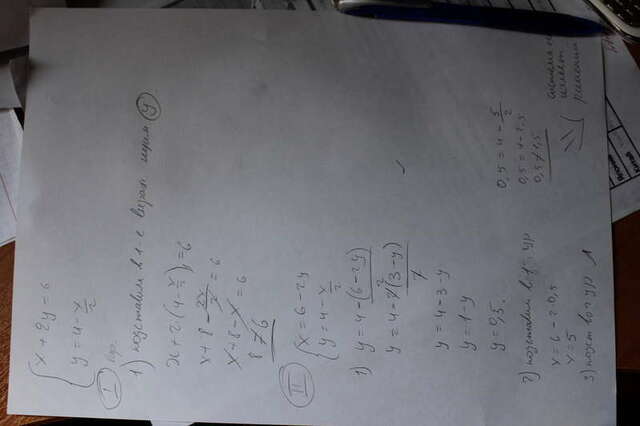 x + 2y = 6
y = 4 - x/2
I вар.
1) подставим в 1-е вираж. игрик (y)
x + 2(4 - x/2) = 6
x + 8 - 2x/2 = 6
x + 8 - x = 6
8 ≠ 6
II
x = 6 - 2y
y = 4 - x/2
1) y = 4 - (6 - 2y)/2
y = 4 - 2(3 - y)/2
y = 4 - 3 - y
y = 1 - y
y = 0,5.
2) подставим в 1-е ур
x = 6 - 2·0,5
x = 5
3) подст во 2 ур
0,5 = 4 - 5/2
0,5 = 4 - 2,5
0,5 ≠ 1,5
система не
имеет
решений